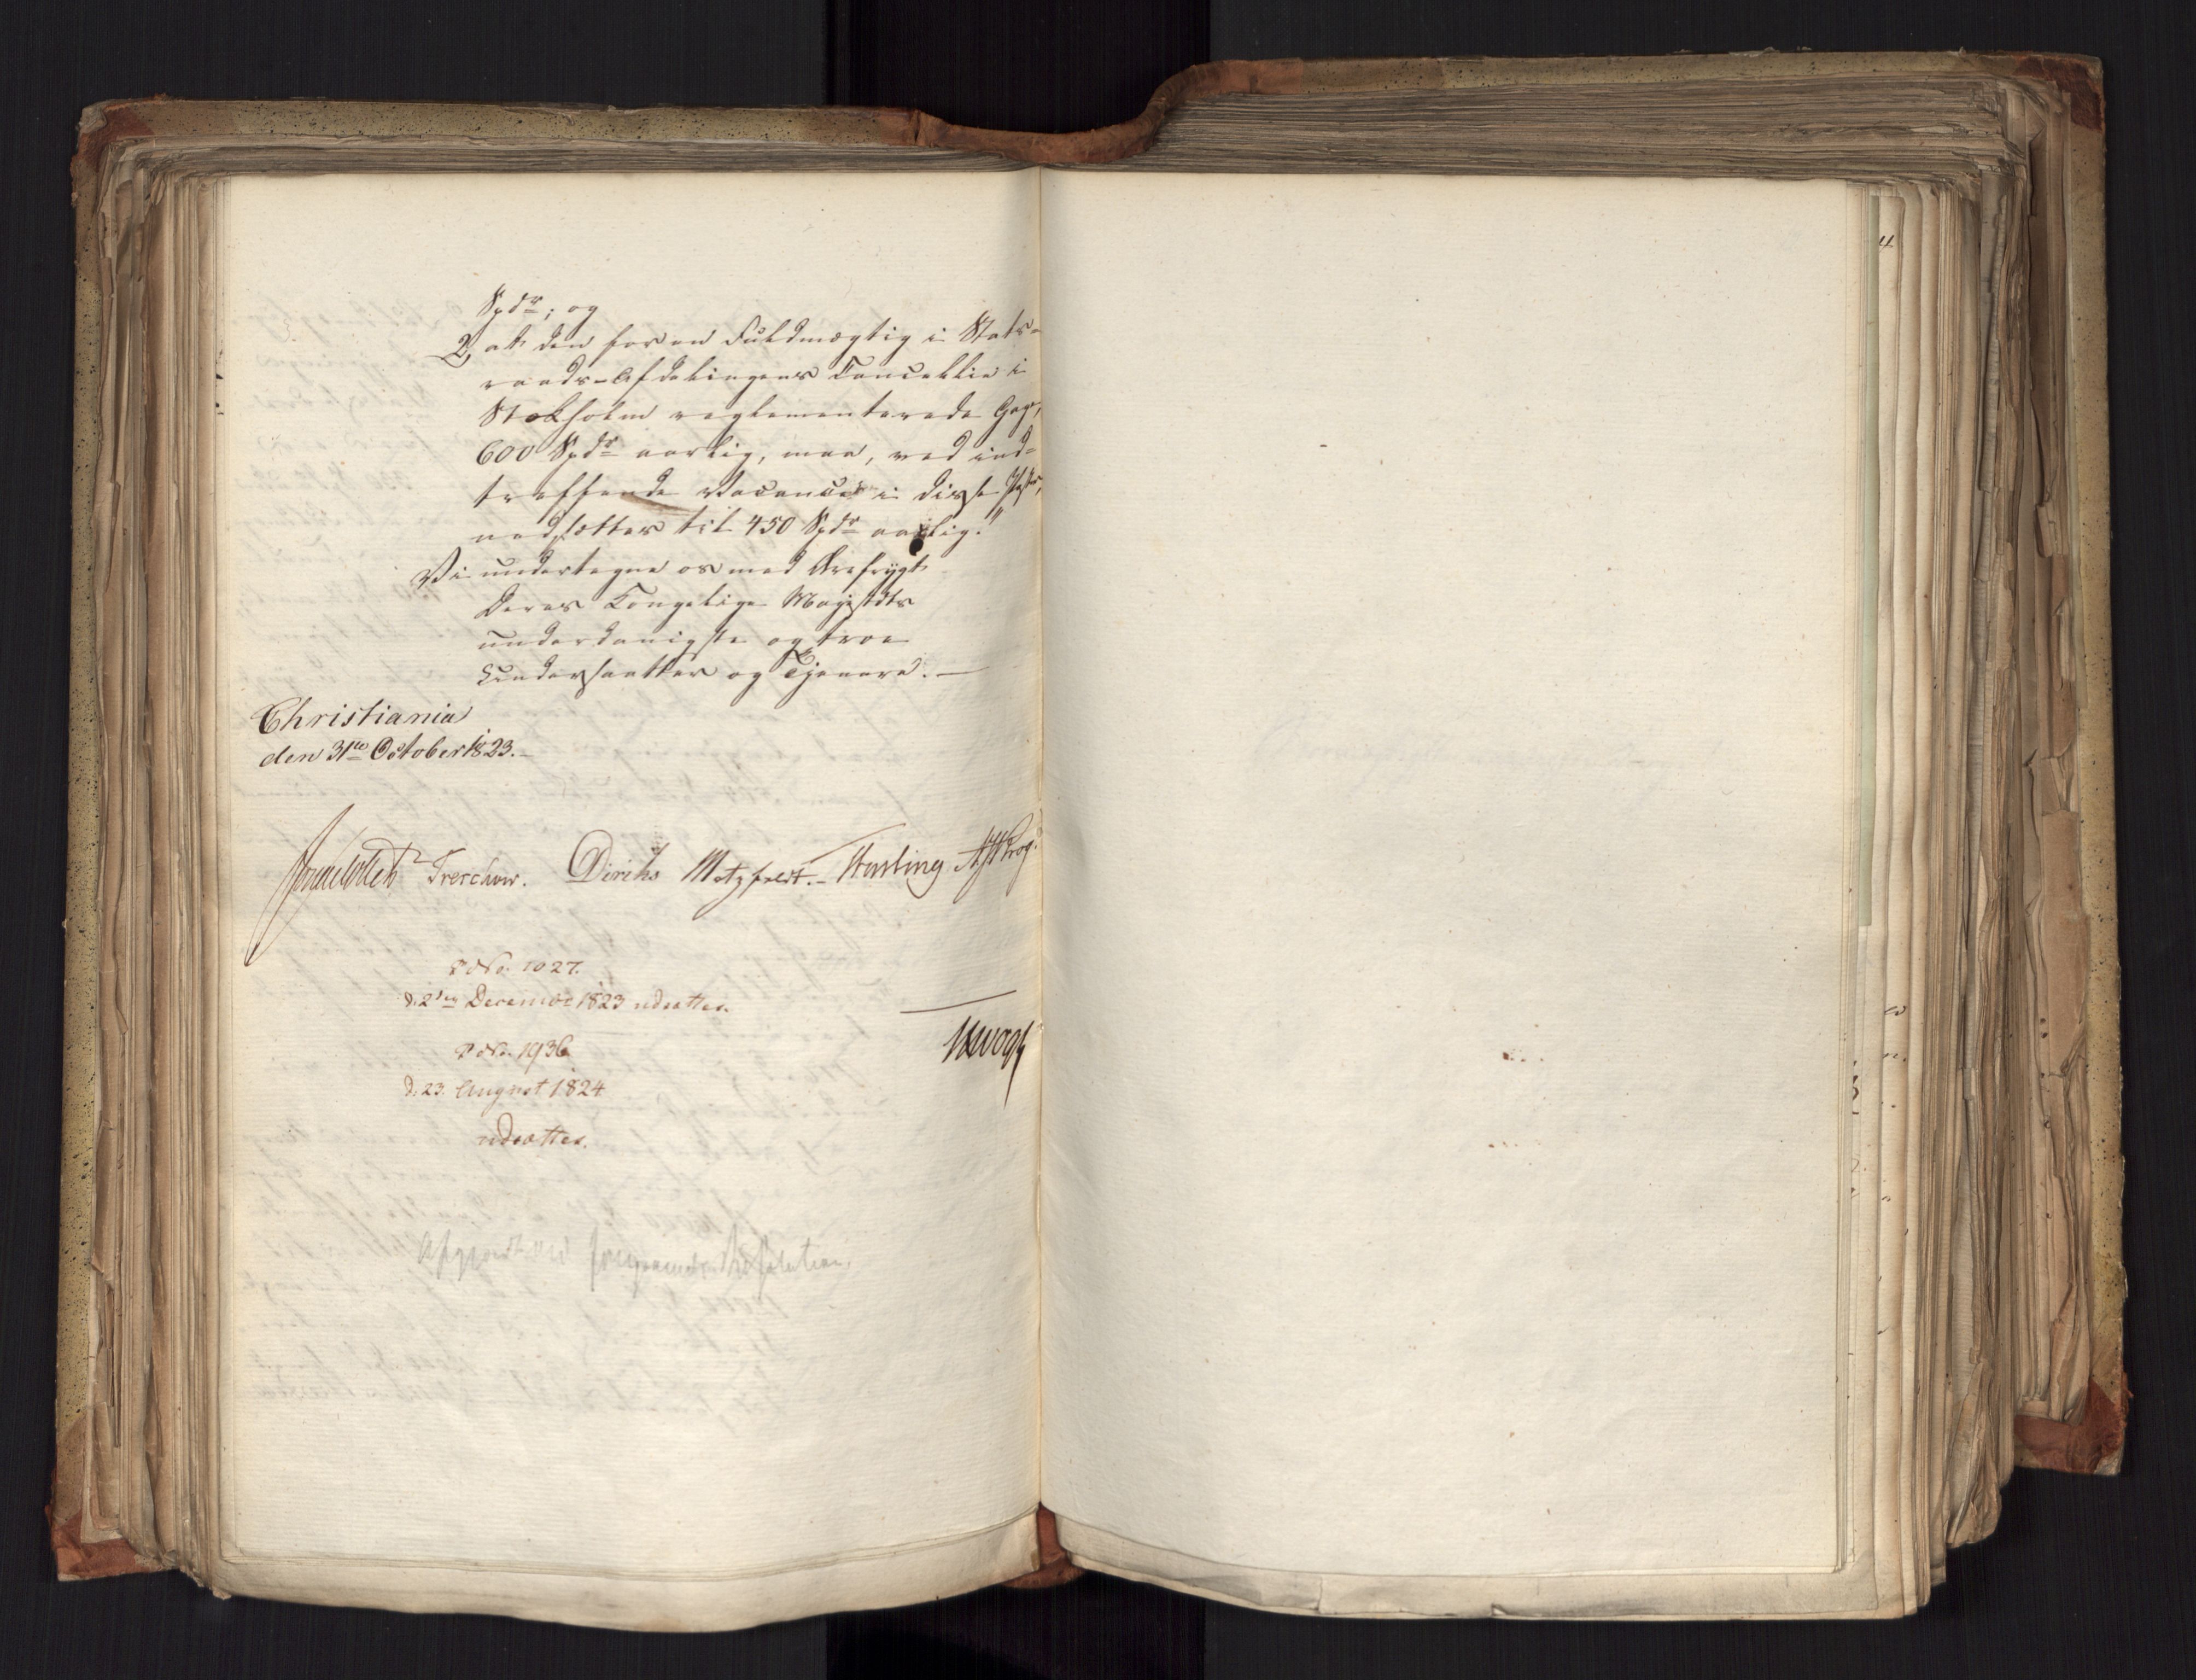 Spdr; og
2, at den for en Fuldmægtig i Stats-
raads-Afdelingens Cancellie i
Stokholm reglementerede Gage,
600 Spdr aarlig, maa, ved ind-
treffende Vacancer i disse Poster,
nedsættes til 450 Spdr aarlig."
Vi undertegne os med Ærefrygt
Deres Kongelige Majestæts
underdanigste og troe
Undersaatter og Tjenere. —
Christiania
den 31te October 1823.
Jonas Collett Treschow. Diriks Motzfeldt. Fasting A. Krog.
P No. 1027.
d. 2den Decembr 1823 udsættes.
J H Vogt
P No. 1936
d. 23 August 1824
udsættes.
Afgjort ved Resolution.